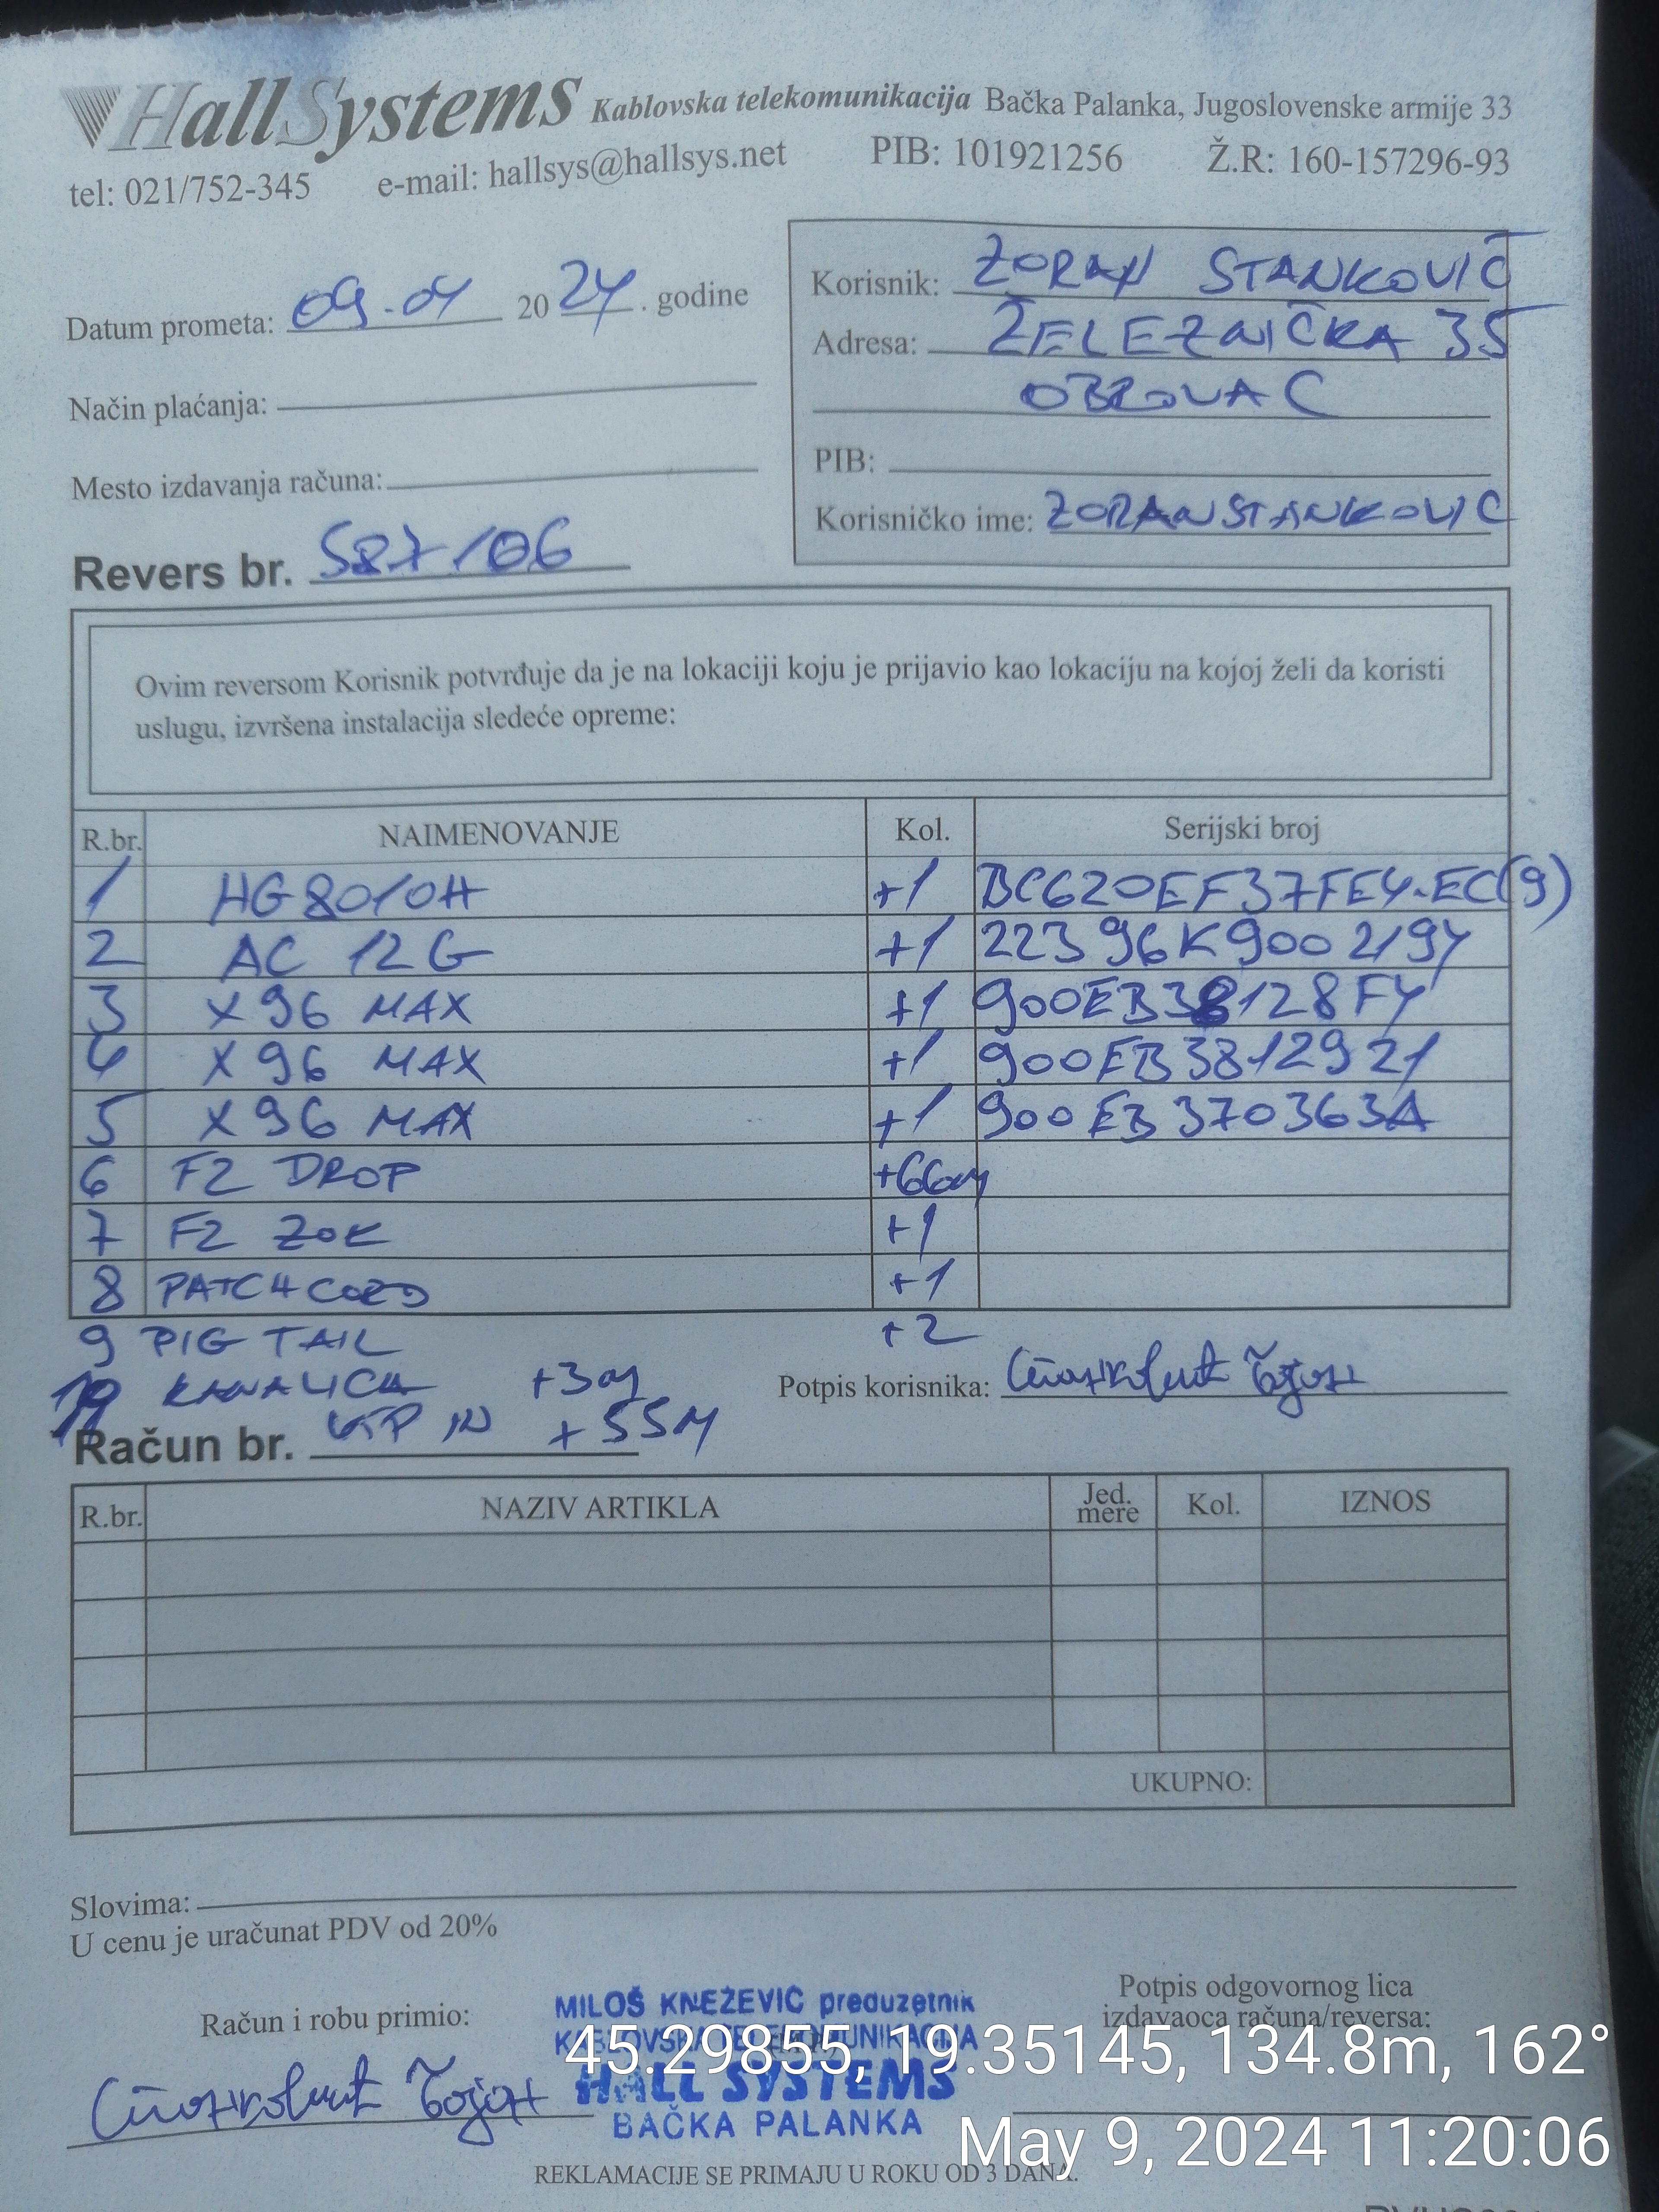 HallSystems Kablovska telekomunikacija Bačka Palanka, Jugoslovenske armije 33
tel: 021/752-345 e-mail: hallsys@hallsys.net PIB: 101921256 Ž.R: 160-157296-93
Datum prometa: 09.04 2024. godine
Način plaćanja:
Mesto izdavanja računa:
Korisnik: ZORAN STANKOVIĆ
Adresa: ŽELEZNIČKA 35
OBROVAC
PIB:
Korisničko ime: ZORANSTANKOVIC
Revers br. 587/06
Ovim reversom Korisnik potvrđuje da je na lokaciji koju je prijavio kao lokaciju na kojoj želi da koristi
uslugu, izvršena instalacija sledeće opreme:
R.br. NAIMENOVANJE Kol. Serijski broj
1 HG8010H +1 BC620EF37FE4-EC(9)
2 AC 12G +1 22396K9002194
3 X96 MAX +1 900EB38128F4
4 X96 MAX +1 900EB3812921
5 X96 MAX +1 900EB370363A
6 F2 DROP +66m
7 F2 ZOK +1
8 PATCHCORD +1
9 PIG TAIL +2
10 KANALICA +3m
UTP IN +55M
Potpis korisnika:
Račun br.
R.br. NAZIV ARTIKLA Jed. mere Kol. IZNOS
UKUPNO:
Slovima:
U cenu je uračunat PDV od 20%
Račun i robu primio:
MILOŠ KNEŽEVIĆ preduzetnik
KABLOVSKA TELEKOMUNIKACIJA
HALL SYSTEMS
BAČKA PALANKA
Potpis odgovornog lica
izdavaoca računa/reversa:
45.29855, 19.35145, 134.8m, 162°
May 9, 2024 11:20:06
REKLAMACIJE SE PRIMAJU U ROKU OD 3 DANA.